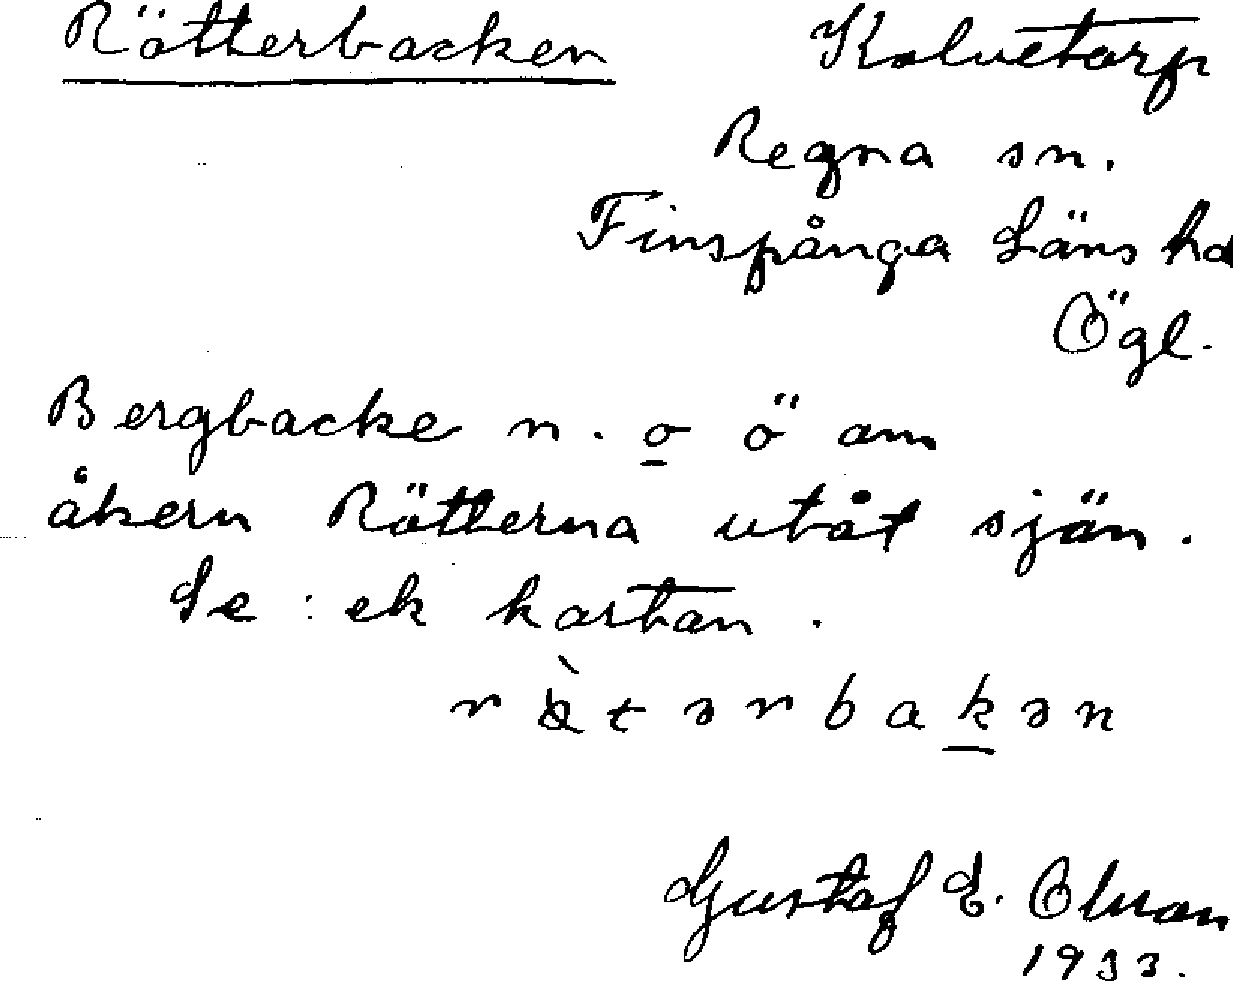 Rötterbacken Kolvetorp
Regna sn.
Finspånga Läns hd
Ögl.
Bergbacke n. o ö om
åkern Rötterna utåt sjön.
Se: ek kartan.
Gustaf E. Olsson
1933.